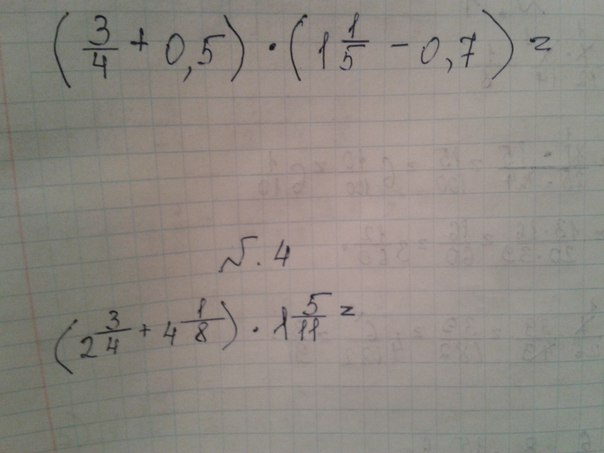 (3/4 + 0,5) · (1 1/5 - 0,7) =
№. 4
(2 3/4 + 4 1/8) · 1 5/11 =